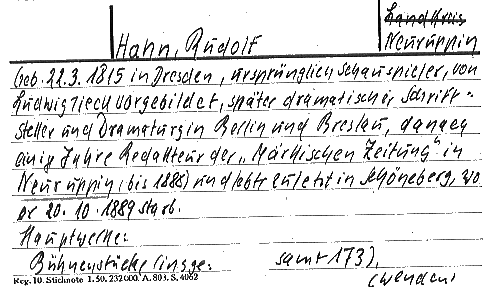 Landkreis
Hahn, Rudolf
Neuruppin
Geb. 22.3.1815 in Dresden, ursprünglich Schauspieler, von
Ludwig Tieck vorgebildet, später dramatischer Schrift-
steller und Dramaturg in Berlin und Breslau, danach
einige Jahre Redakteur der „Märkischen Zeitung“ in
Neuruppin (bis 1885) und lebte zuletzt in Schöneberg, wo
er 20.10.1889 starb.
Hauptwerke:
Bühnenstücke (insge-
samt 173),
(wenden)
Reg. 10. Stichnote 1. 50. 232000. A. 803. S. 4062